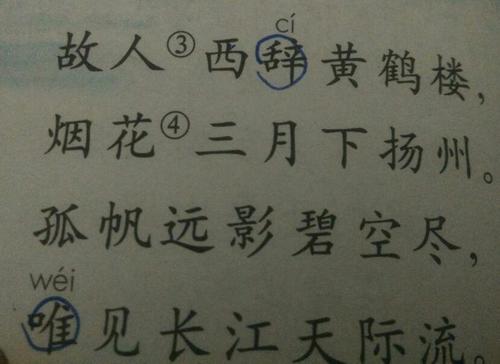 cí
故人③西辞黄鹤楼，
烟花④三月下扬州。
孤帆远影碧空尽，
wéi
唯见长江天际流。